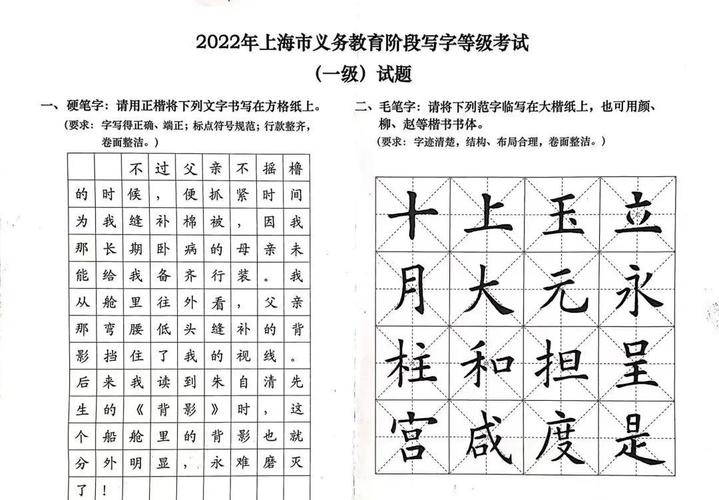 2022年上海市义务教育阶段写字等级考试
（一级）试题
一、硬笔字：请用正楷将下列文字书写在方格纸上。
（要求：字写得正确、端正；标点符号规范；行款整齐，
卷面整洁。）
不过父亲不摇橹
的时候，便抓紧时间
为我缝补棉被，因我
那长期卧病的母亲未
能给我备齐行装。我
从舱里往外看，父亲
那弯腰低头缝补的背
影挡住了我的视线。
后来我读到朱自清先
生的《背影》时，这
个船舱里的背影也就
分外明显，永难磨灭
了！
二、毛笔字：请将下列范字临写在大楷纸上，也可用颜、
柳、赵等楷书书体。
（要求：字迹清楚，结构、布局合理，卷面整洁。）
十上玉立
月大元永
柱和担呈
宫咸度是